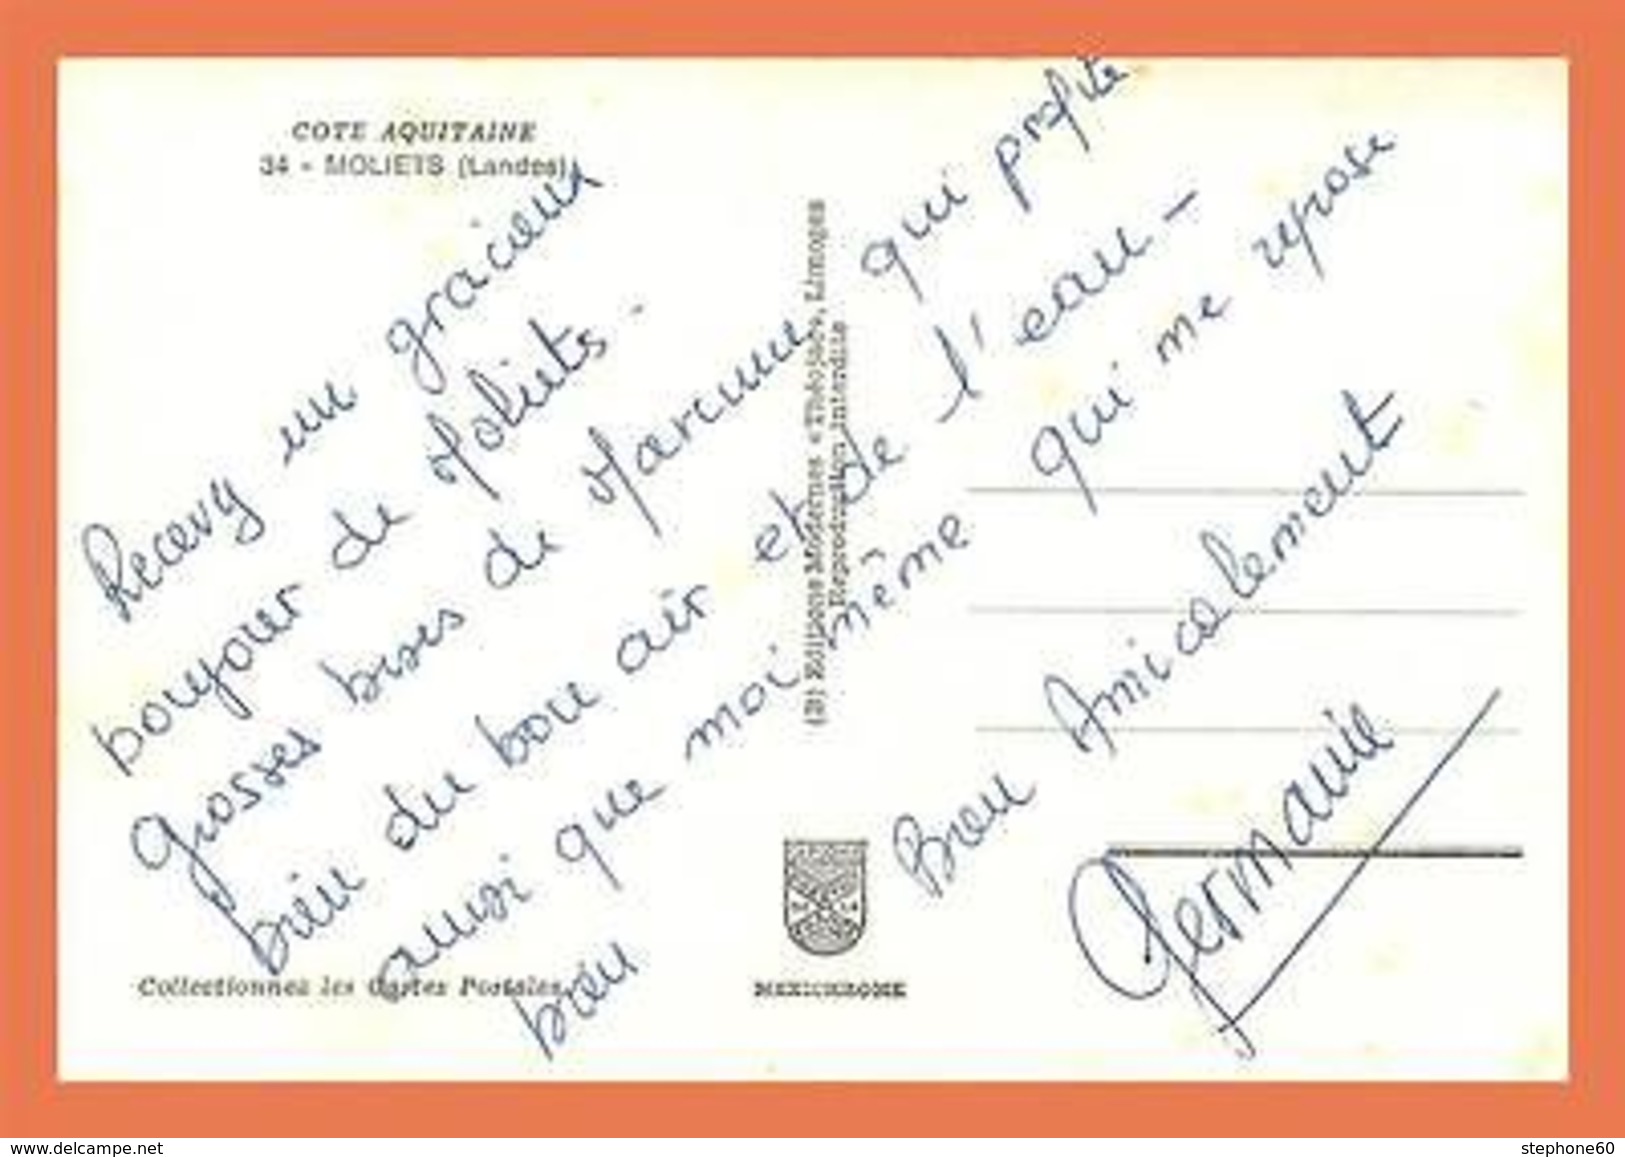 COTE AQUITAINE
34 - MOLIETS (Landes)
Recevez un gracieux
bonjour de Moliets -
Grosses bises de Maxime qui profite
bien du bon air et de l'eau -
aussi que moi même qui me repose
bien
Bien Amicalement
Germaine
(D) Editions Modernes « Théojac », Limoges
Reproduction interdite
Collectionnez les Cartes Postales
MEXICHROME
delcampe.net
stephone60